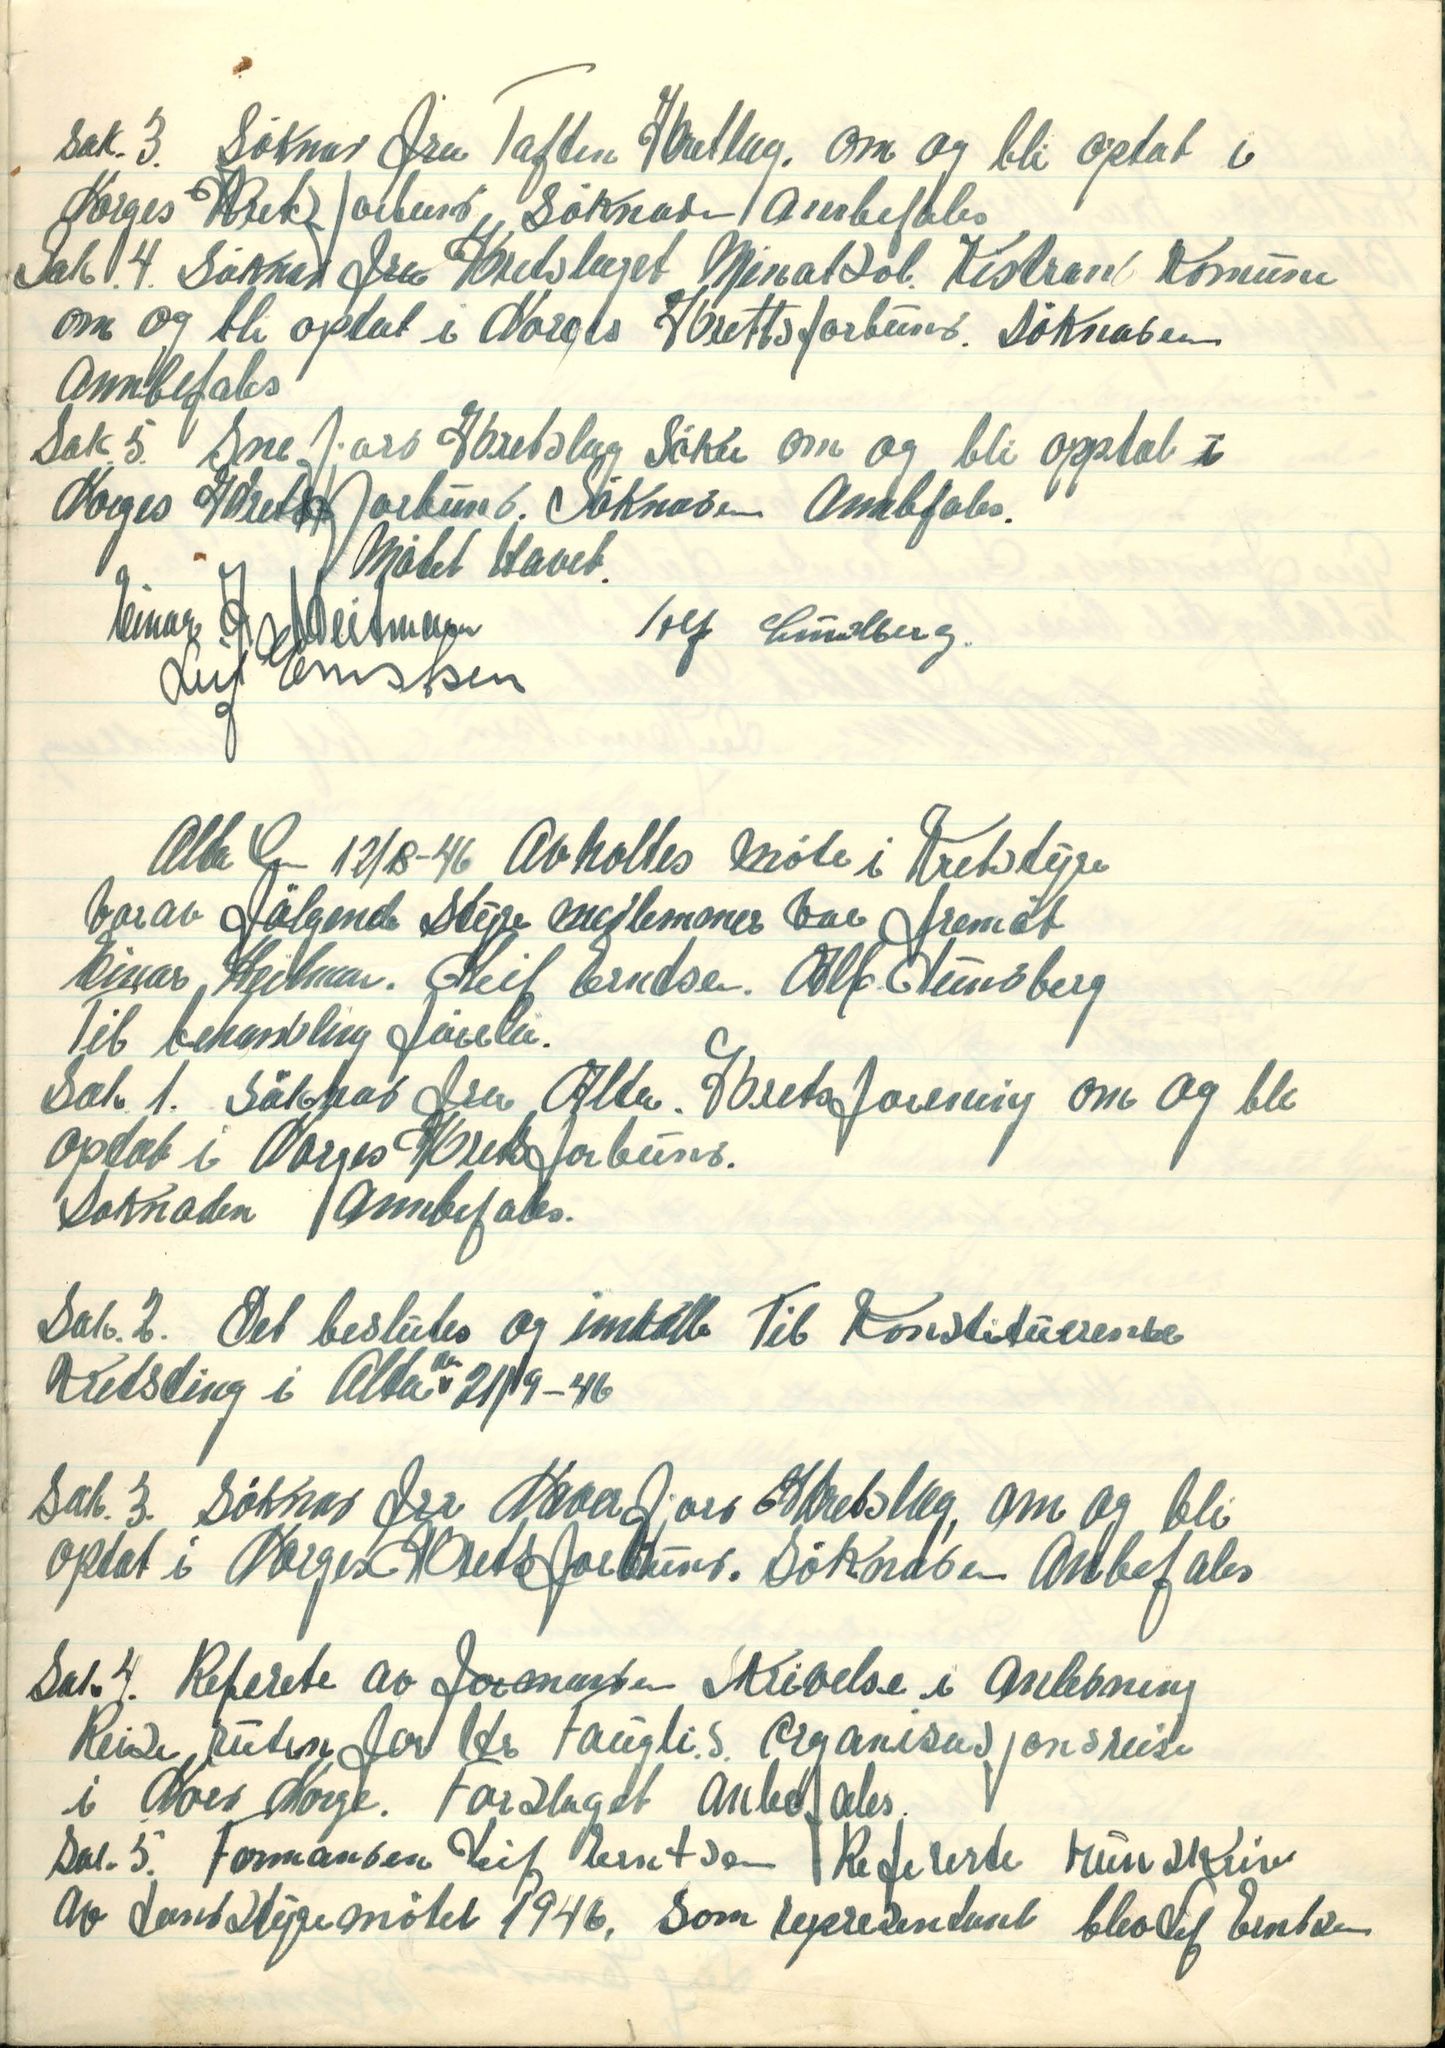 Sak. 3. Söknad fra Taften Idretlag. om og bli optat i
Norges Idrets forbund, Söknaden Annbefales
Sak. 4. Söknad fra Idretslaget Minatsol. Kistrand Komune
om og bli optat i Norges Idrettsforbund. Söknaden
Annbefales
Sak. 5. Snefjord Idretslag Söker om og bli opptat i
Norges Idretsforbund. Söknaden Annbefales.
Mötet Havet.
Einar Heitmann Alf Lundberg.
Leif Erntsen
Alta Den 12/8-46 Avholtes möte i Kretstyre
Varav fölgende styre medlemmer var fremöt
Einar Heitman. Leif Erndsen. Alf Lundberg
Til behandling förelå.
Sak. 1. Söknad fra Alta. Idretsforening om og bli
optat i Norges Idretsforbund.
Söknaden Annbefales.
Sak. 2. Det beslutes og innkalle Til Konstituerende
Kretsting i Alta den 21/9-46
Sak. 3. Söknad fra Kvenfjord Idretslag, om og bli
optat i Norges Idretsforbund. Söknaden Anbefales
Sak. 4. Referete av formanden Skrivelse i Anledning
Reise ruten for Hr Faugli.s. Organisasjonsreise
i Nord Norge. Forslaget Anbefales.
Sak. 5. Formanden Leif Erntsen Refererte rundskriv
Av Landsstyremötet 1946. Som representant blev Leif Erntsen